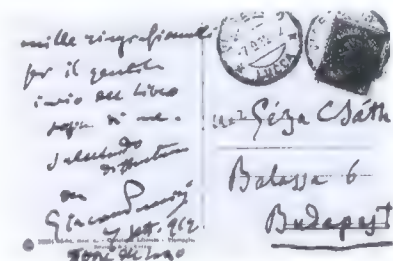 mille ringraziamenti
per il gentile
invio del libro
sopra di me.
Salutando
distintamente
Giacomo Puccini
7 sett. 912
Torre del Lago
LUCCA
Géza Csáth
Balassa 6
Budapest